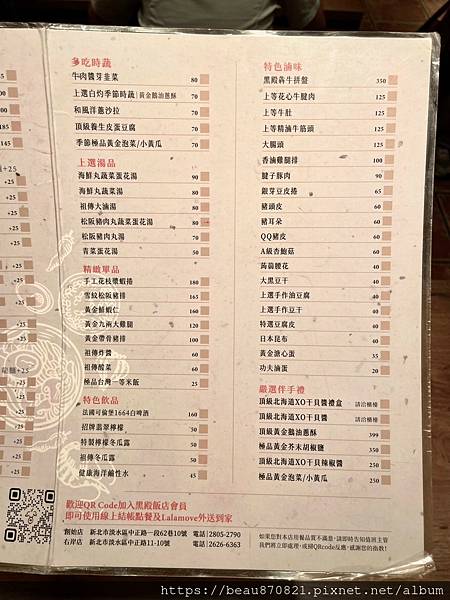 多吃時蔬
牛肉醬芽韭菜 80
上選白灼季節時蔬|黃金鵝油蔥酥 70
和風洋蔥沙拉 70
頂級養生皮蛋豆腐 70
季節極品黃金泡菜/小黃瓜 70
上選湯品
海鮮丸蔬菜蛋花湯 90
海鮮丸蔬菜湯 80
祖傳大滷湯 80
松阪豬肉丸蔬菜蛋花湯 80
松阪豬肉丸湯 70
青菜蛋花湯 50
精緻單品
手工花枝漿蝦捲 180
雪紋松阪豬排 165
黃金醉蝦仁 160
黃金九兩大雞腿 120
黃金帶骨豬排 100
祖傳炸醬 60
祖傳酸菜 60
極品台灣一等米飯 25
特色飲品
法國可倫堡1664白啤酒 160
招牌翡翠檸檬 50
特製檸檬冬瓜露 50
祖傳冬瓜露 50
健康海洋鹼性水 45
特色滷味
黑殿犇牛拼盤 350
上等花心牛腱肉 125
上等牛肚 125
上等精滷牛筋頭 125
大腸頭 125
香滷雞腿排 100
腱子豚肉 90
銀芽豆皮捲 65
豬頭皮 60
豬耳朵 60
QQ豬皮 60
A級杏鮑菇 60
蒟蒻腰花 40
大黑豆干 40
上選手作油豆腐 40
上選手作豆干 40
特選豆腐皮 40
日本昆布 40
黃金溏心蛋 35
功夫滷蛋 20
嚴選伴手禮
頂級北海道XO干貝醬禮盒 請洽櫃檯
頂級北海道XO干貝醬 請洽櫃檯
頂級黃金鵝油蔥酥 399
極品黃金芥末胡椒鹽 350
頂級北海道XO干貝辣椒醬 250
極品黃金泡菜/小黃瓜 250
歡迎QR Code加入黑殿飯店會員
即可使用線上結帳點餐及Lalamove外送到家
創始店 新北市淡水區中正路一段62巷10號 電話|2805-2790
右岸店 新北市淡水區中正路11-10號 電話|2626-6363
如果您對本店用餐品質不滿意,請即時告知值班主管
我們將立即處理,或掃QRcode反應,感謝您的指教!
https://beau870821.pixnet.net/album